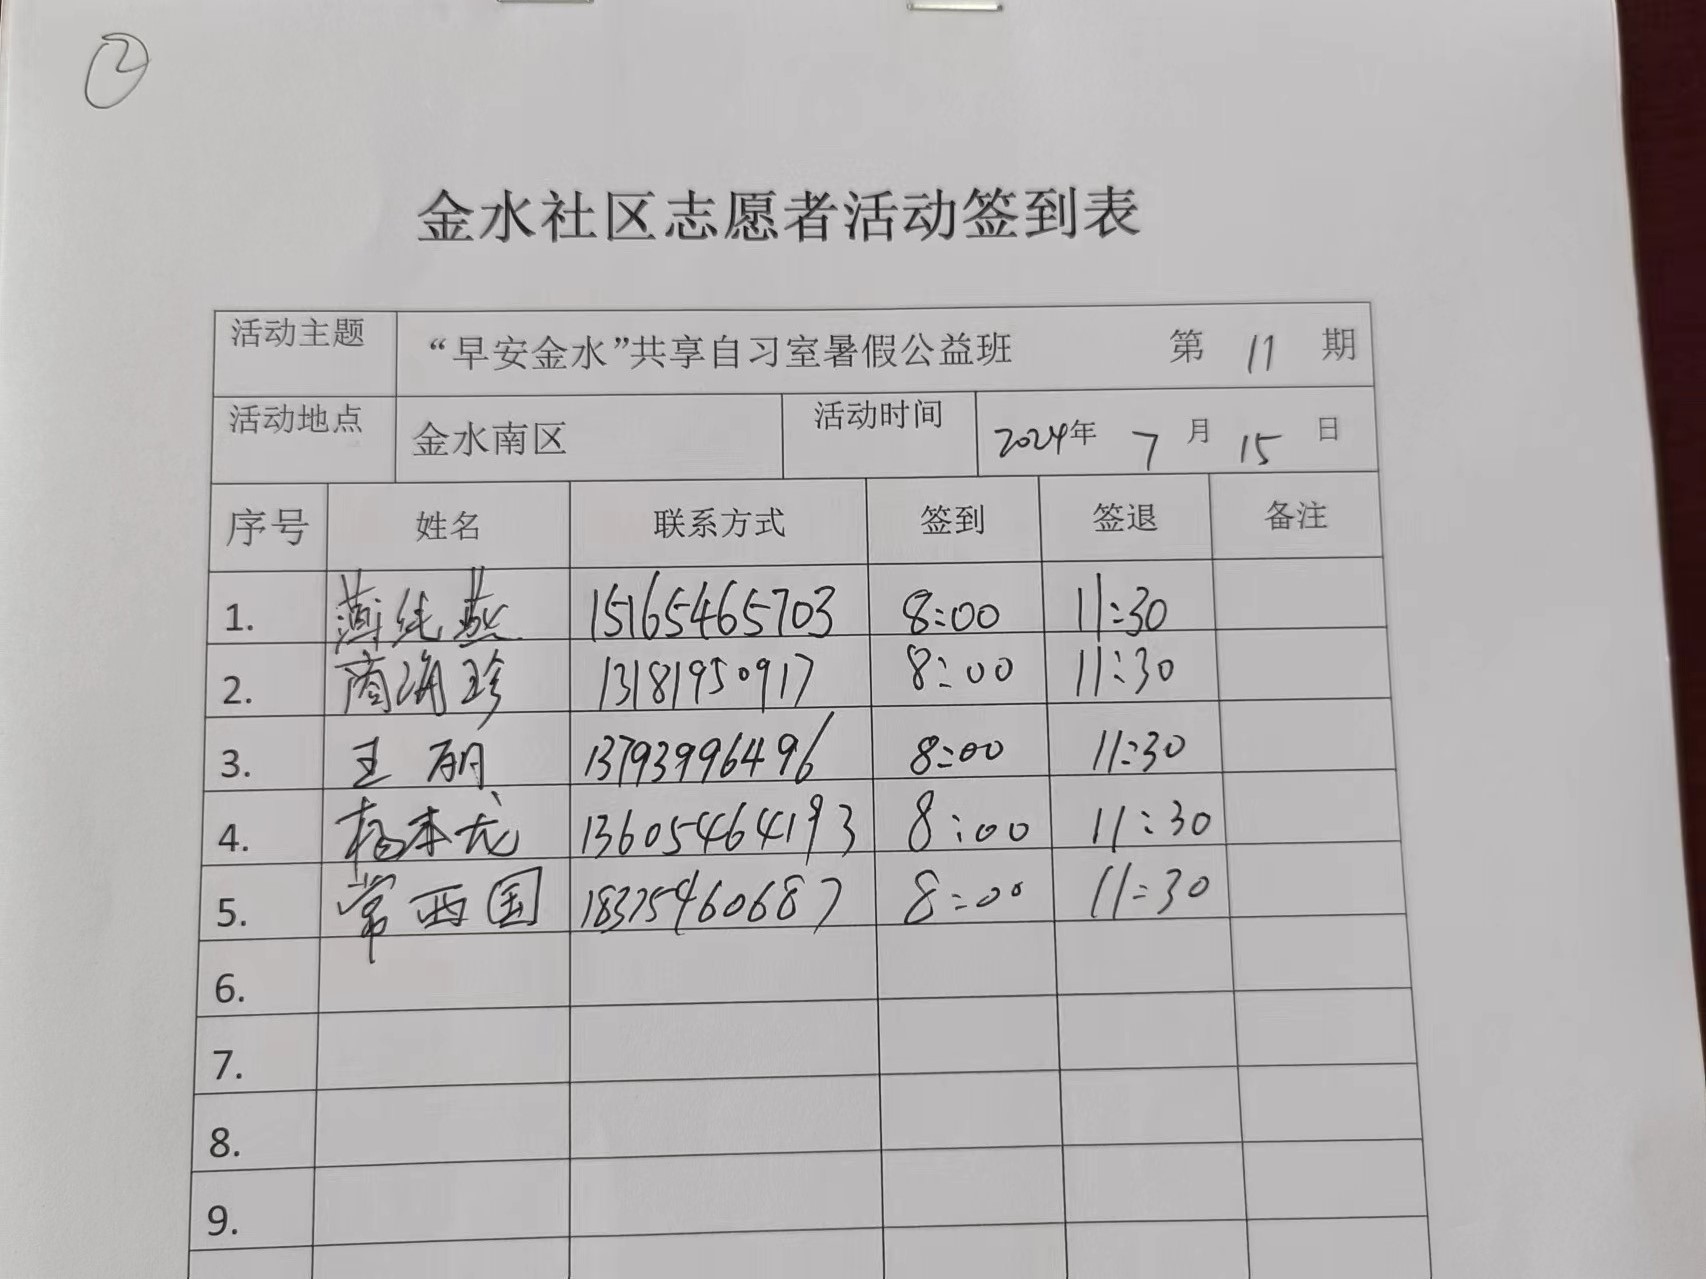 ②
金水社区志愿者活动签到表
活动主题 “早安金水”共享自习室暑假公益班 第 11 期
活动地点 金水南区 活动时间 2024年 7 月 15 日
序号 姓名 联系方式 签到 签退 备注
1. 薄纯燕 15165465703 8:00 11:30
2. 商海珍 13181950917 8:00 11:30
3. 王丽 13793996496 8:00 11:30
4. 杨本龙 13605464193 8:00 11:30
5. 常西国 18375460687 8:00 11:30
6.
7.
8.
9.